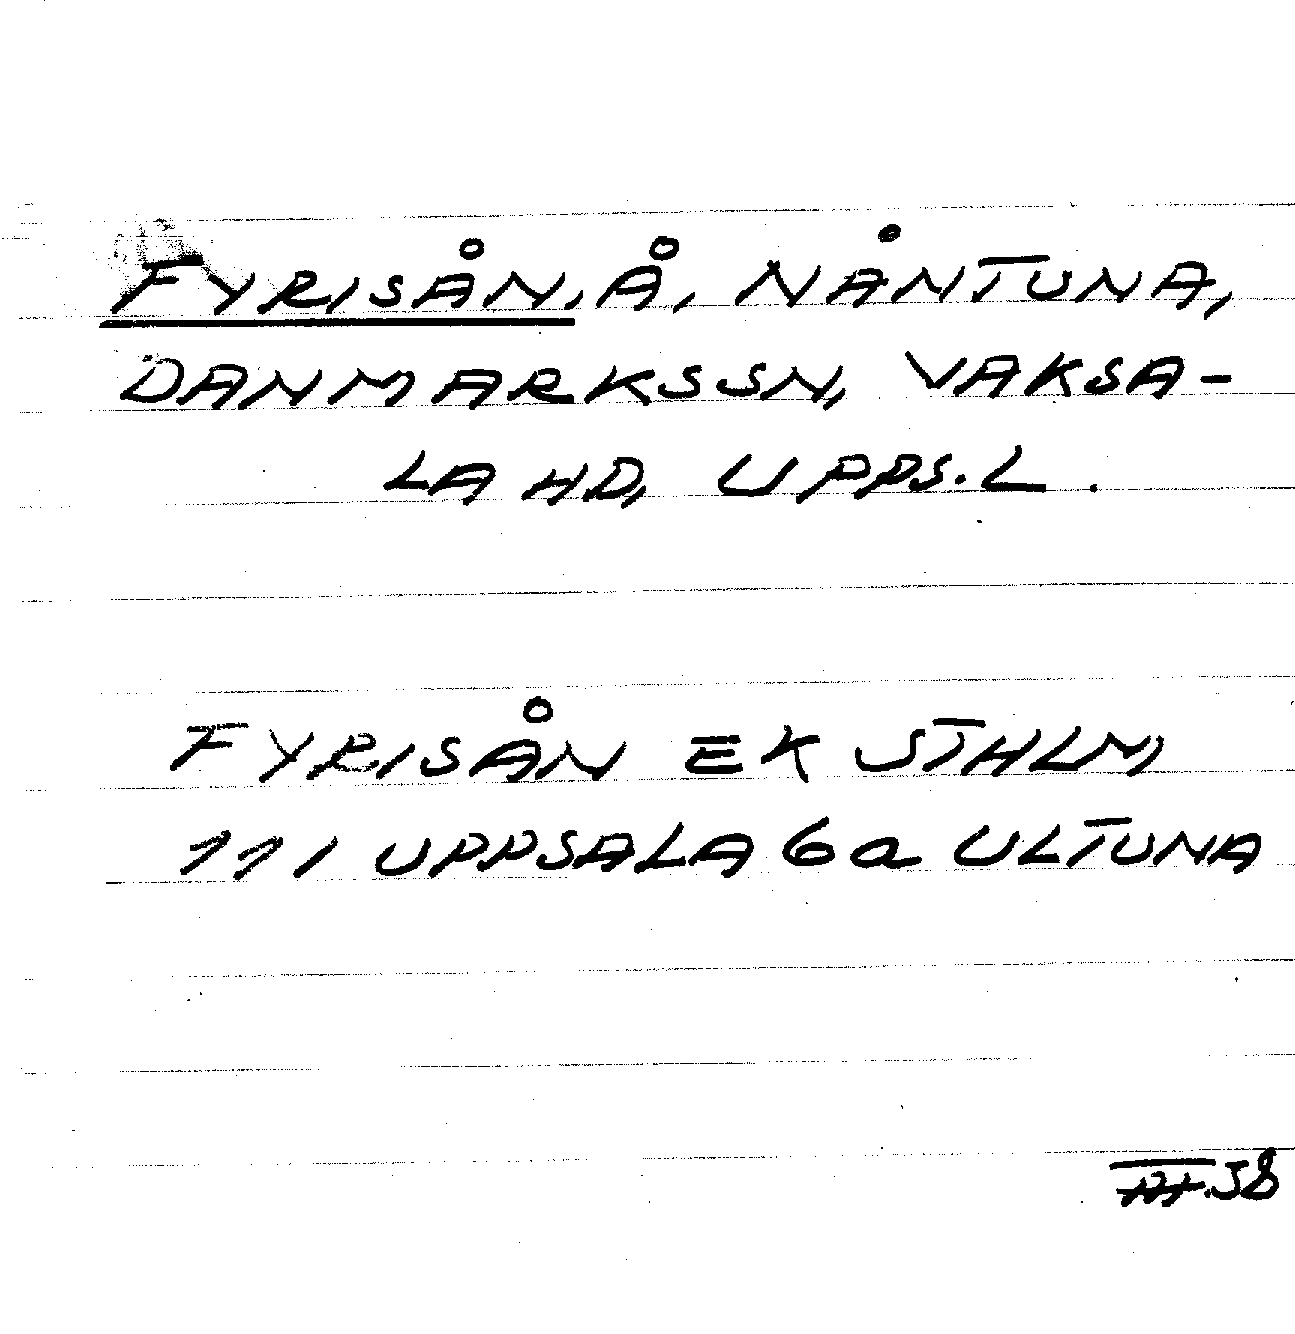 FYRISÅN, Å, NÅNTUNA,
DANMARKSSN, VAKSA-
LA HD, UPPS.L.
FYRISÅN EK STHLM
111 UPPSALA 6a ULTUNA